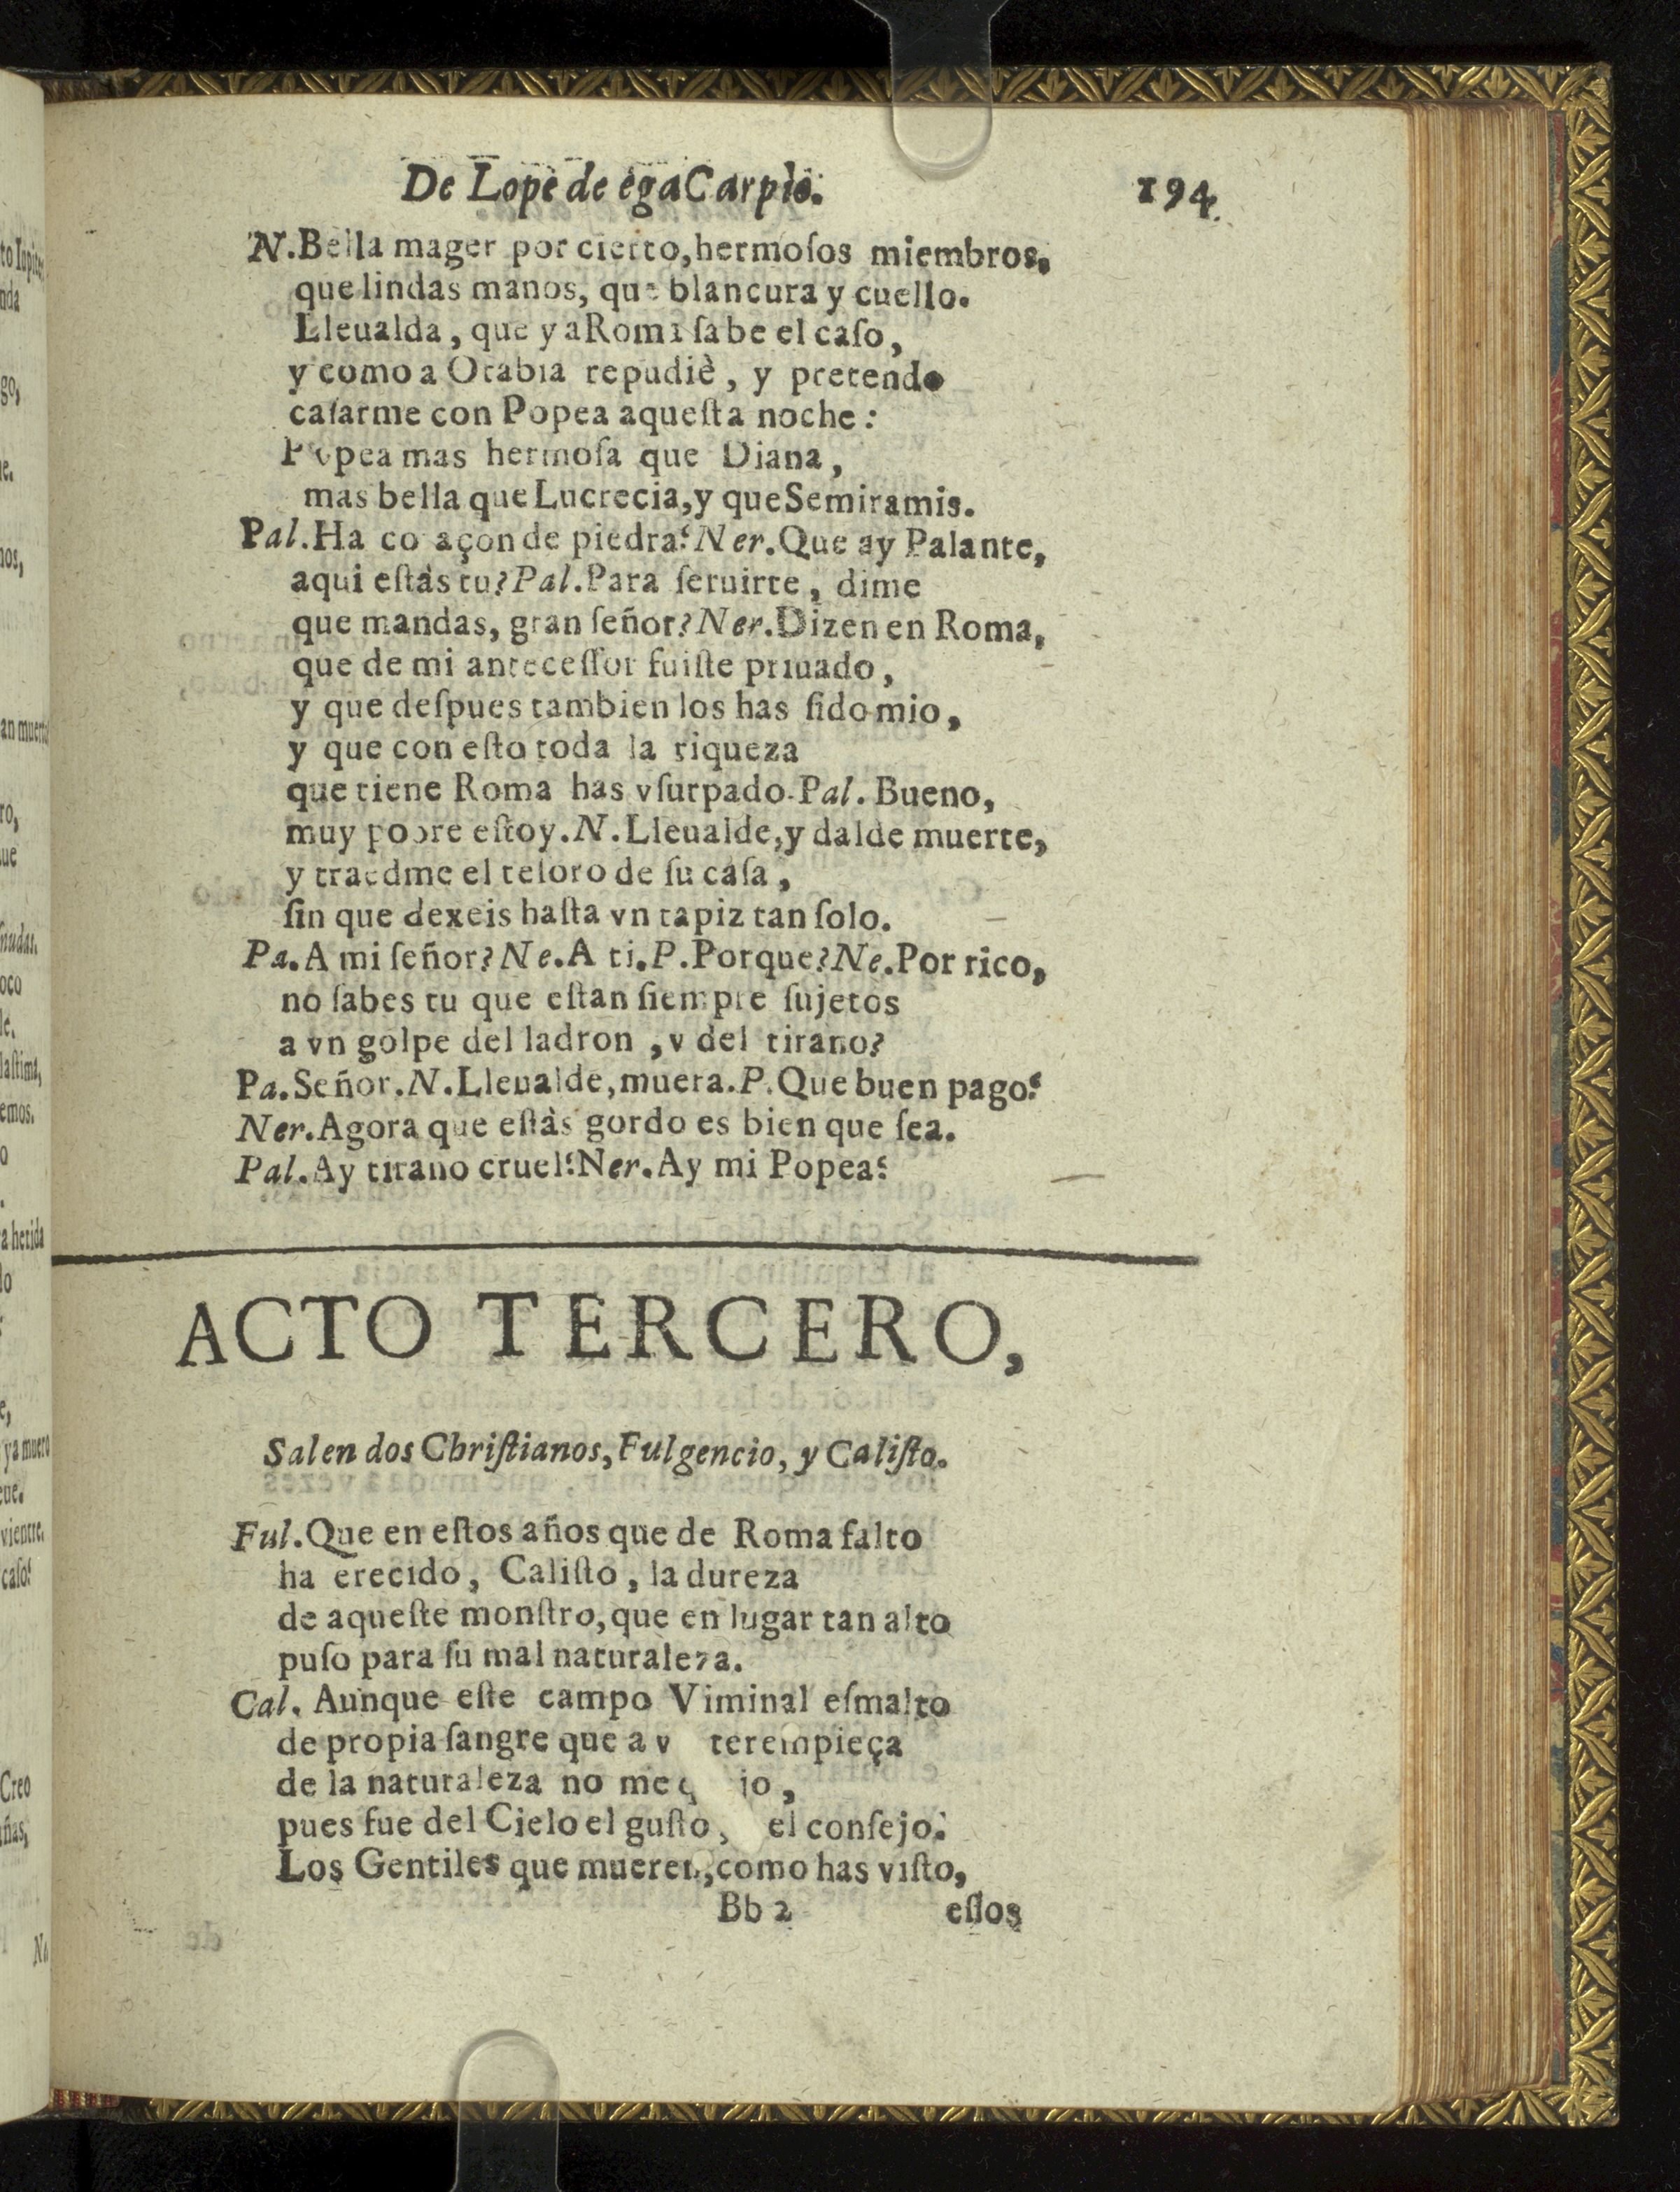 De Lope de ega Carpio.
194.
N. Bella mager por cierto, hermoſos miembros,
que lindas manos, que blancura y cuello.
Lleualda, que ya Roma ſabe el caſo,
y como a Otabia repudiè, y pretendo
caſarme con Popea aqueſta noche:
Popea mas hermoſa que Diana,
mas bella que Lucrecia, y que Semiramis.
Pal. Ha co açon de piedra! Ner. Que ay Palante,
aqui eſtàs tu? Pal. Para ſeruirte, dime
que mandas, gran ſeñor? Ner. Dizen en Roma,
que de mi anteceſſor fuiſte priuado,
y que deſpues tambien los has ſido mio,
y que con eſto toda la riqueza
que tiene Roma has vſurpado. Pal. Bueno,
muy pobre eſtoy. N. Lleualde, y dalde muerte,
y traedme el teſoro de ſu caſa,
ſin que dexeis haſta vn tapiz tan ſolo.
Pa. A mi ſeñor? Ne. A ti. P. Porque? Ne. Por rico,
no ſabes tu que eſtan ſiempre ſujetos
a vn golpe del ladron, v del tirano?
Pa. Señor. N. Lleualde, muera. P. Que buen pago!
Ner. Agora que eſtàs gordo es bien que ſea.
Pal. Ay tirano cruel! Ner. Ay mi Popea!
ACTO TERCERO,
Salen dos Chriſtianos, Fulgencio, y Caliſto.
Ful. Que en eſtos años que de Roma falto
ha erecido, Caliſto, la dureza
de aqueſte monſtro, que en lugar tan alto
puſo para ſu mal naturaleza.
Cal. Aunque eſte campo Viminal eſmalto
de propia ſangre que a v terempieça
de la naturaleza no me q jo,
pues fue del Cielo el guſto, el conſejo.
Los Gentiles que mueren, como has viſto,
Bb 2
eſſos